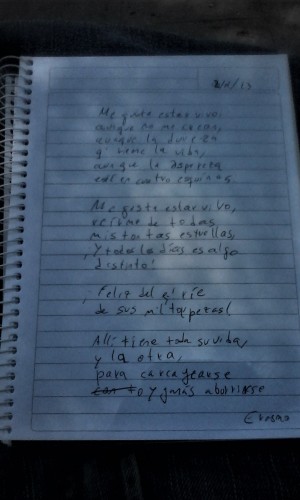 Me gusta estar vivo,
aunque no me creas,
aunque la dureza
q' tiene la vida,
aunque la aspereza
esté en cuatro esquinas.
Me gusta estar vivo,
reirme de todas
mis tontas estrellas,
¡Y todos los días es algo
distinto!
¡Feliz del q' ríe
de sus mil
Allí tiene toda su vida,
y la otra,
para carcajearse
o y jamás aburrirse